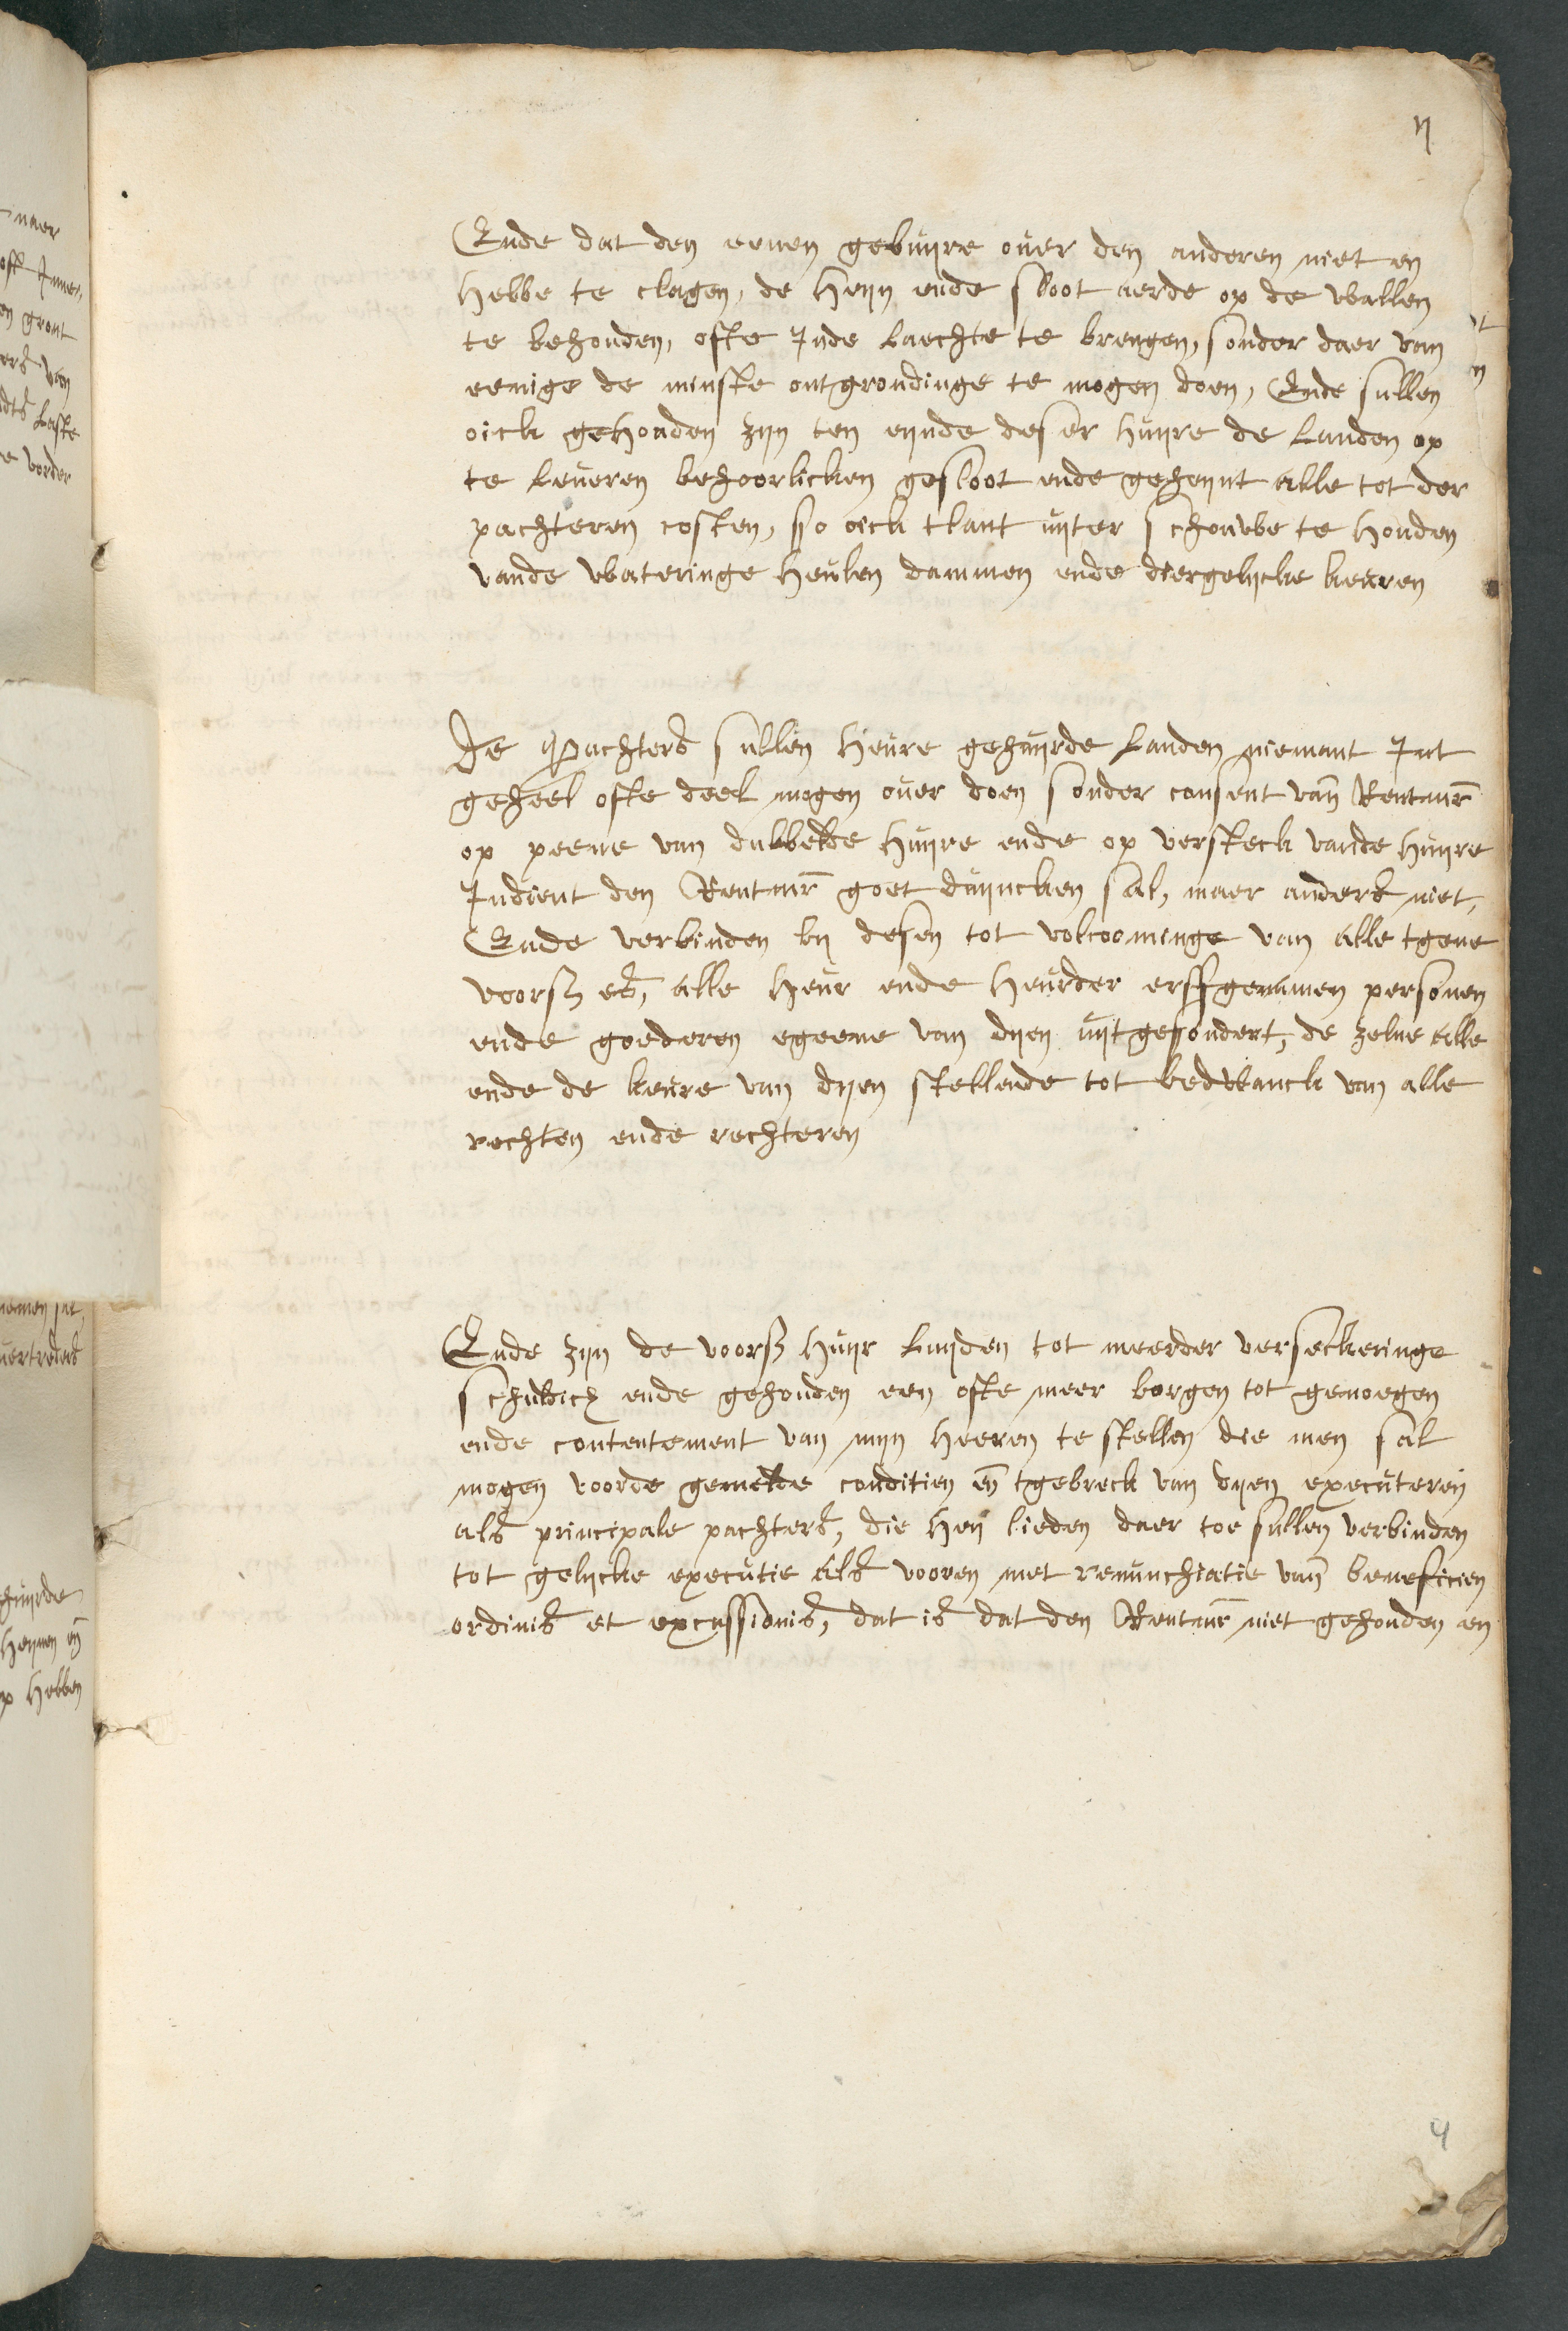 ij
Ende dat den eenen gebuijre over den anderen niet en
hebbe te clagen, de heijn ende sloot aerde op de wallen
te behouden, ofte Inde laechte te brengen, sonder daer van
eenige de minste ontgrondinge te mogen doen, Ende sullen
oick gehouden zijn ten eijnde deser huijre de landen op
te leveren behoorlicken gesloot ende geheijnt alle tot der
pachteren costen, so oick tlant uijter schouwe te houden
vande wateringe heulen dammen ende diergelijcke keuren
De Pachters sullen heure gehuijrde landen niemant Int
geheel ofte deel mogen over doen sonder consent van Rentmr
op peene van dubbelde huijre ende op versteck vande huijre
Indient den Rentmr goet duijncken sal, maer anders niet,
Ende verbinden bij desen tot volcoominge van alle tgene
voorsz es, alle heur ende heurder erffgenamen persoenen
ende goederen egeene van dijen uijtgesondert, de zelve alle
ende de keure van dijen stellende tot bedwanck van alle
rechten ende rechteren
Ende zijn de voorsz huijr luijden tot meerder verseckeringe
schuldich ende gehouden een ofte meer borgen tot genoegen
ende contentement van mijn heeren te stellen die men sal
mogen voorde gemelde conditien en tgebreck van dijen executeren
als principale pachters, die hen lieden daer toe sullen verbinden
tot gelijcke executie als vooren met renunchiatie van beneficien
ordinis et excussionis, dat is dat den Rentmr niet gehouden en
4
naer
gront
van
laste
vorder
hebben